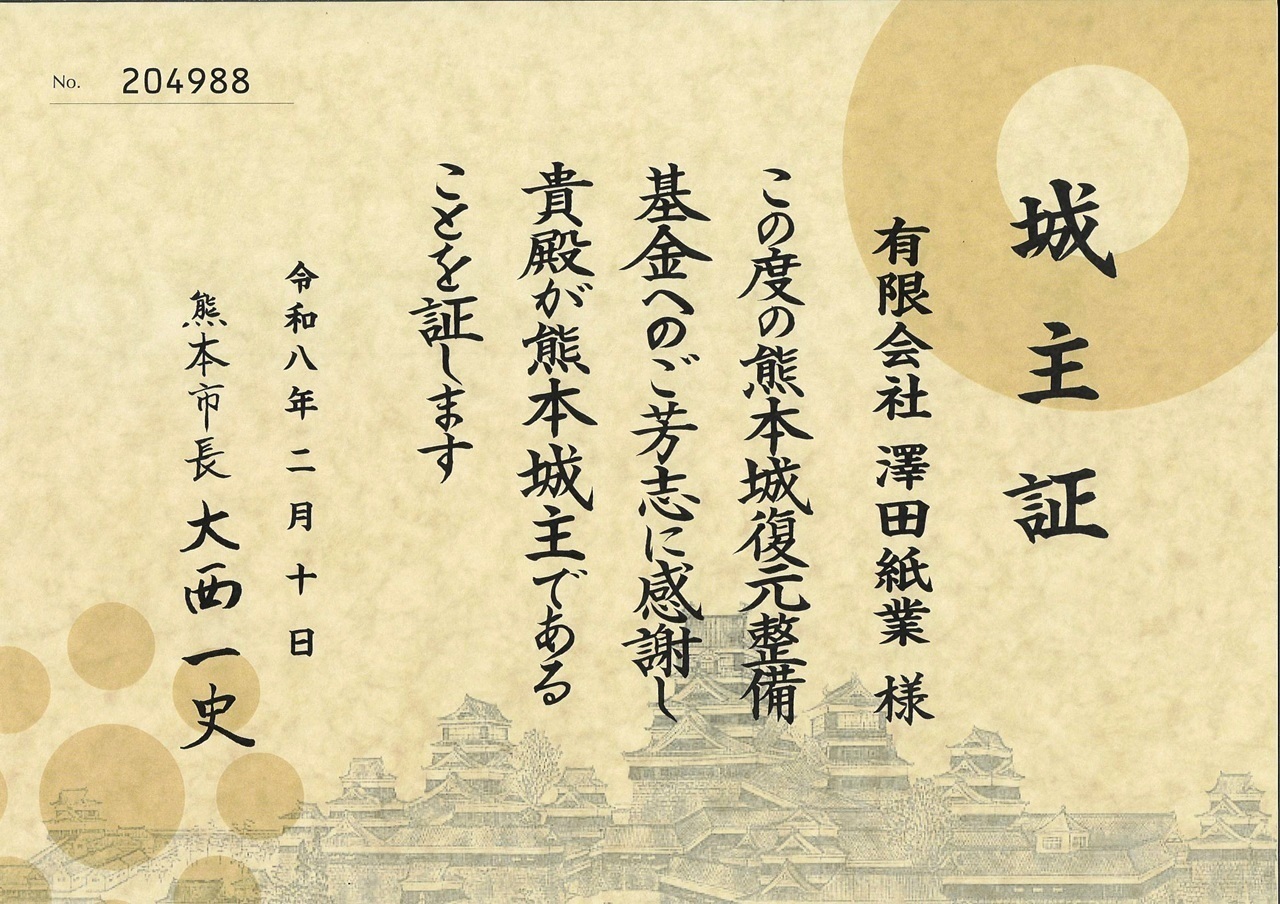 No. 204988
城主証
有限会社 澤田紙業 様
この度の熊本城復元整備
基金へのご芳志に感謝し
貴殿が熊本城主である
ことを証します
令和八年二月十日
熊本市長 大西一史